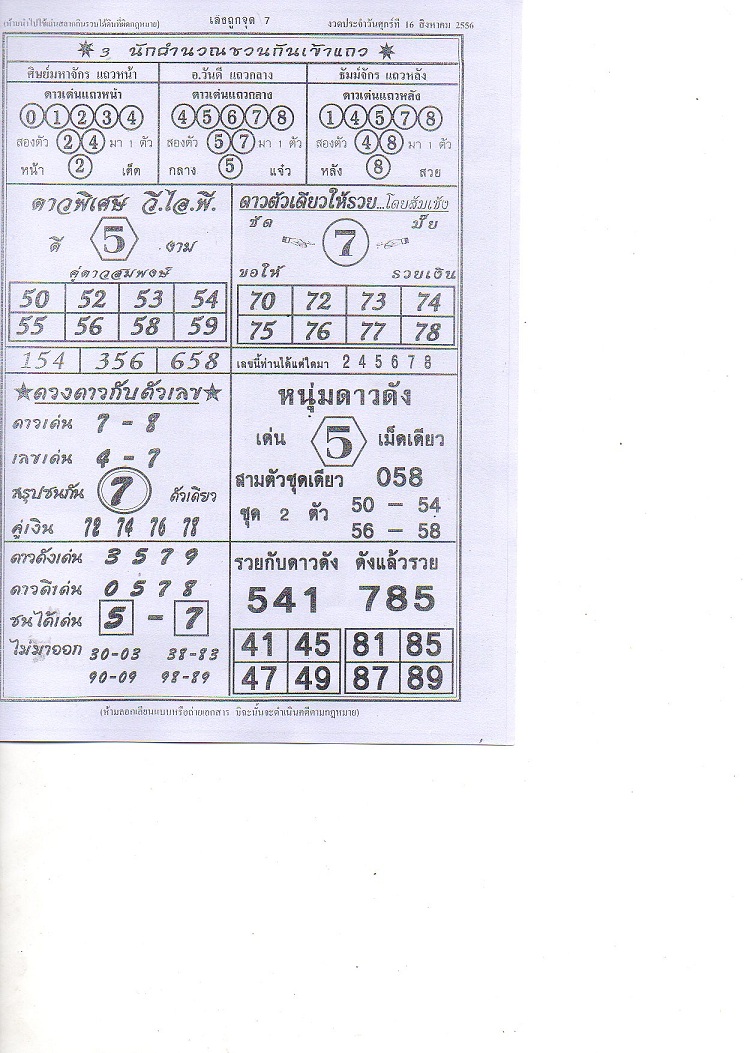 (ห้ามนำไปใช้เล่นสลากกินรวบได้ผิดกฎหมาย) เลขถูกจุด 7 งวดประจำวันศุกร์ที่ 16 สิงหาคม 2556
3 นักคำนวณชวนกันเข้าแถว
ศิษย์มหาจักร แถวหน้า อ.วันดี แถวกลาง ธัมม์จักร แถวหลัง
ดาวเด่นแถวหน้า ดาวเด่นแถวกลาง ดาวเด่นแถวหลัง
0 1 2 3 4 4 5 6 7 8 1 4 5 7 8
สองตัว 2 4 มา 1 ตัว สองตัว 5 7 มา 1 ตัว สองตัว 4 8 มา 1 ตัว
หน้า 2 เด็ด กลาง 5 แจ๋ว หลัง 8 สวย
ดาวพิเศษ วี.ไอ.พี.
ดี 5 งาม
คู่ดาวสมพงษ์
50 52 53 54
55 56 58 59
154 356 658
ดาวตัวเดียวให้รวย...โดยส้มเช้ง
ชัด ปั๊ย
7
ขอให้ รวยเงิน
70 72 73 74
75 76 77 78
เลขนี้ท่านได้แต่ใดมา 2 4 5 6 7 8
ดวงดาวกับตัวเลข
ดาวเด่น 7 - 8
เลขเด่น 4 - 7
สรุปชนกัน 7 ตัวเดียว
คู่เงิน 72 74 76 78
หนุ่มดาวดัง
เด่น 5 เม็ดเดียว
สามตัวชุดเดียว 058
ชุด 2 ตัว 50 - 54
56 - 58
ดาวดังเด่น 3 5 7 9
ดาวดีเด่น 0 5 7 8
ชนได้เด่น 5 - 7
ไม่มาออก 30-03 38-83
90-09 98-89
รวยกับดาวดัง ดังแล้วรวย
541 785
41 45 81 85
47 49 87 89
(ห้ามลอกเลียนแบบหรือถ่ายเอกสาร มิฉะนั้นจะดำเนินคดีตามกฎหมาย)